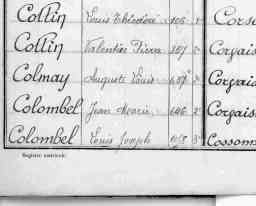 Collin Louis Théodore 106 1° Corse
Collin Valentin Pierre 107 2° Corçais
Colmay Auguste Louis 2° Corçais
Colombel Jean Marie 646 2° Corçais
Colombel Louis Joseph 3° Cosson
Registre matricule: